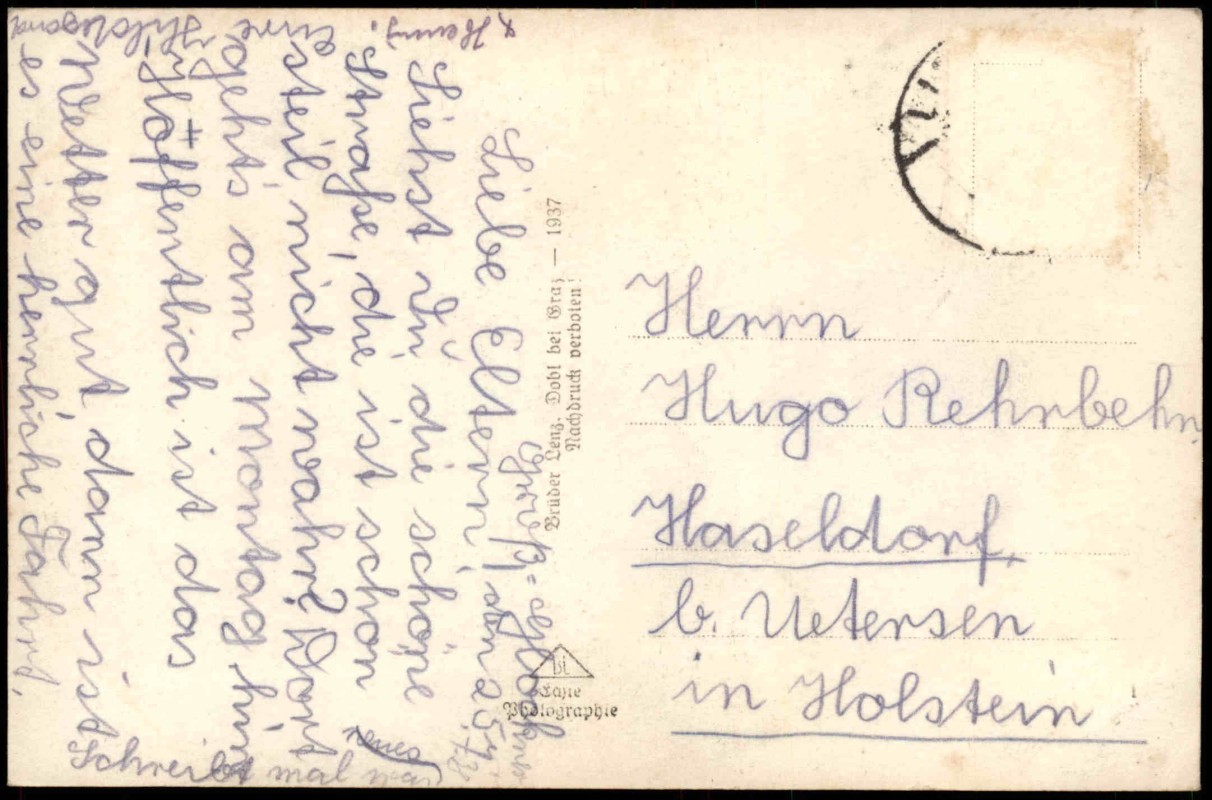 Groß-Glockner
den 25.7.38
Liebe Eltern,
Siehst Du die schöne
Straße, die ist schon
steil nicht wahr? Dort
geht's am Montag hin
Hoffentlich ist das
Wetter gut dann ist
es eine herrliche Fahrt.
Schreibt mal was
neues
Eure Hildegard
& Hans.
Brüder Lenz, Dobl bei Graz — 1937
Nachdruck verboten!
Echte
Photographie
Herrn
Hugo Rehrbehn
Haseldorf,
b. Uetersen
in Holstein